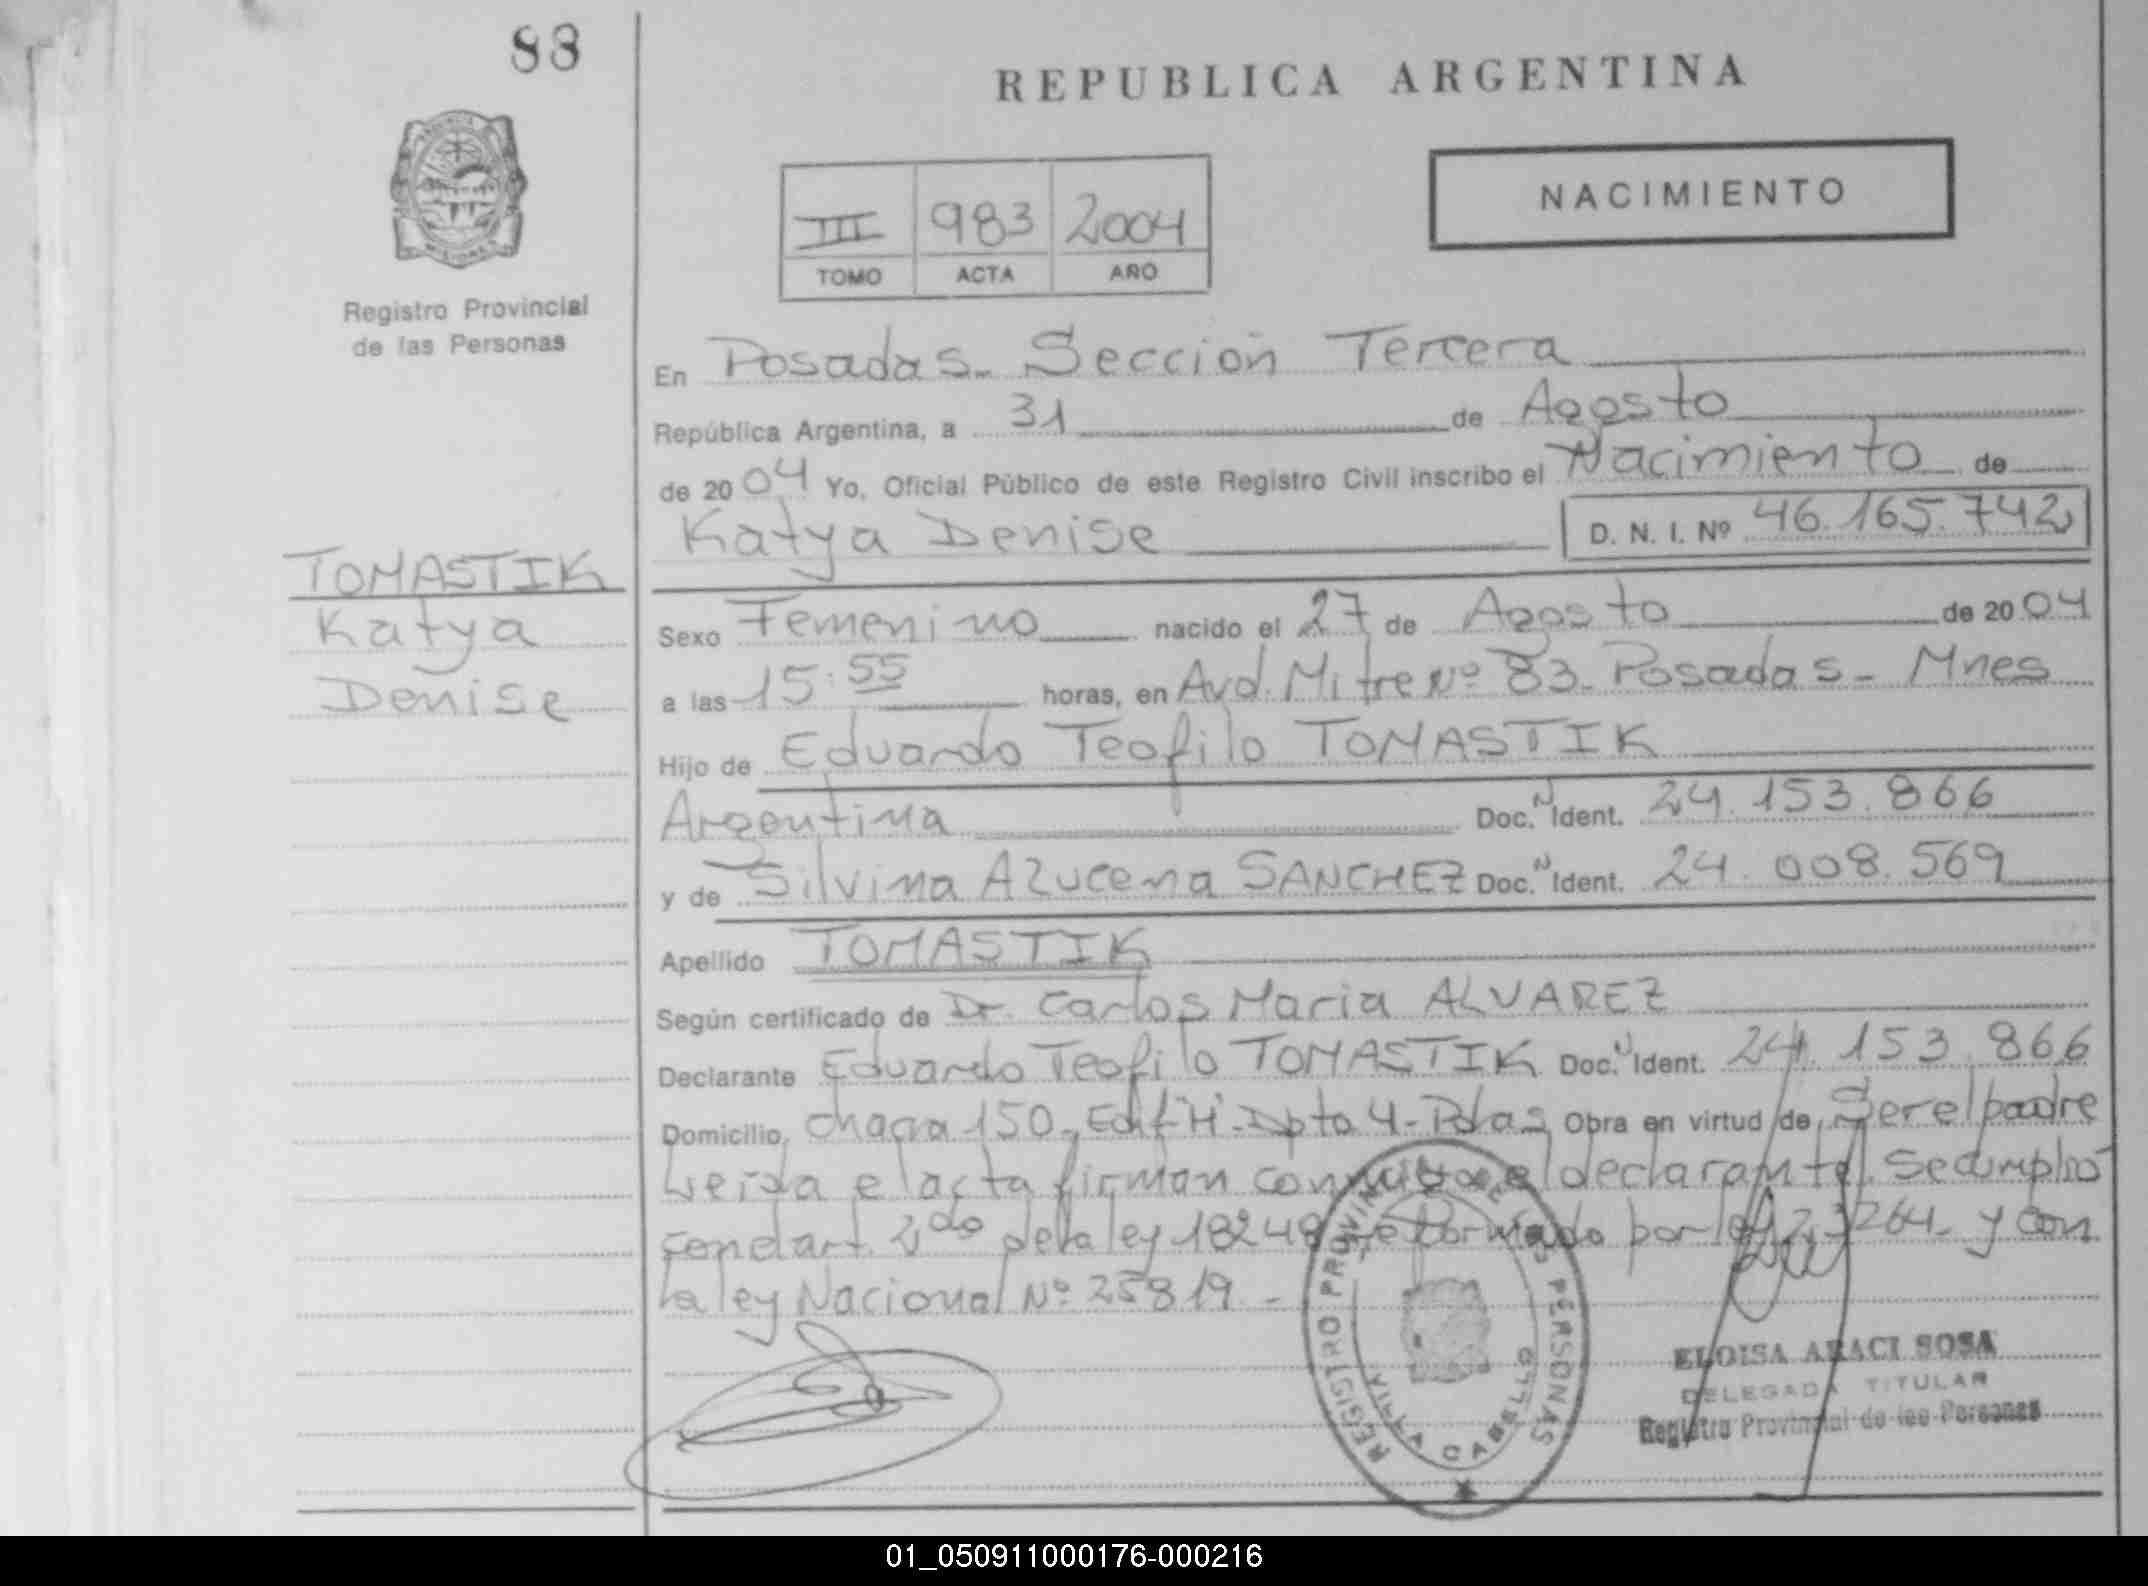 88
REPUBLICA ARGENTINA
NACIMIENTO
III 983 2004
TOMO ACTA AÑO
Registro Provincial
de las Personas
En Posadas - Sección Tercera
República Argentina, a 31 de Agosto
de 2004 Yo, Oficial Público de este Registro Civil inscribo el Nacimiento de
Katya Denise D. N. I. Nº 46.165.742
TOMASTIK
Katya
Denise
Sexo Femenino nacido el 27 de Agosto de 2004
a las 15:55 horas, en Avd. Mitre Nº 83 - Posadas - Mnes
Hijo de Eduardo Teofilo TOMASTIK
Argentina Doc. N Ident. 24.153.866
y de Silvina Azucena SANCHEZ Doc. N Ident. 24.008.569
Apellido TOMASTIK
Según certificado de Dr. Carlos Maria ALVAREZ
Declarante Eduardo Teofilo TOMASTIK Doc. N Ident. 24.153.866
Domicilio chacra 150 - Edif "H" - Dpto 4 - Pdas Obra en virtud de Ser el padre
Leida el acta firman conmigo el declarante. Se cumplió
con el art. 2do de la ley 18248 reformado por ley 23264 - y con
la ley Nacional Nº 25819 -
REGISTRO PROVINCIAL DE LAS PERSONAS
VILLA CABELLO
ELOISA ARACI SOSA
DELEGADA TITULAR
Registro Provincial de las Personas
01_050911000176-000216